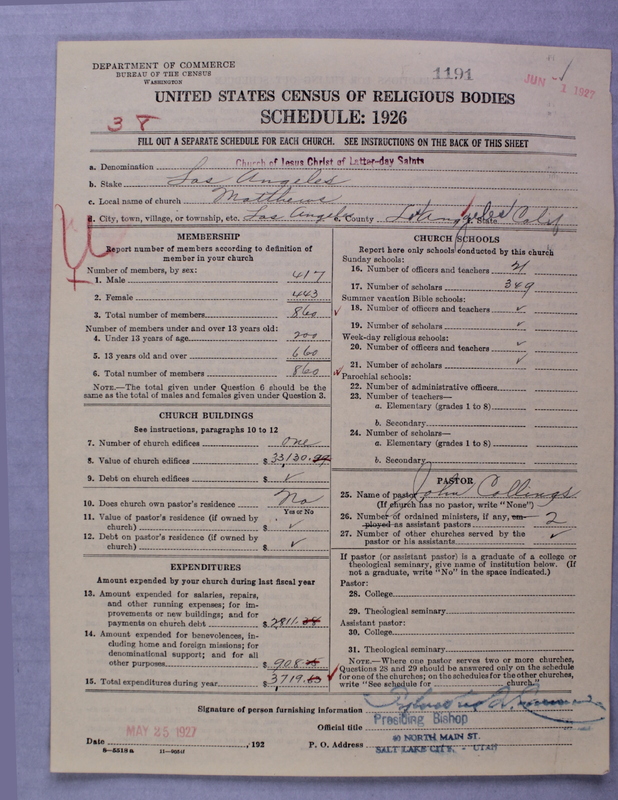 DEPARTMENT OF COMMERCE
BUREAU OF THE CENSUS
WASHINGTON
1191
JUN 1 1927
UNITED STATES CENSUS OF RELIGIOUS BODIES
SCHEDULE: 1926
38
FILL OUT A SEPARATE SCHEDULE FOR EACH CHURCH. SEE INSTRUCTIONS ON THE BACK OF THIS SHEET
a. Denomination Church of Jesus Christ of Latter-day Saints
b. Stake Los Angeles
c. Local name of church Matthews
d. City, town, village, or township, etc. Los Angeles e. County Los Angeles f. State Calif
MEMBERSHIP
Report number of members according to definition of
member in your church
Number of members, by sex:
1. Male 417
2. Female 443
3. Total number of members 860
Number of members under and over 13 years old:
4. Under 13 years of age 200
5. 13 years old and over 660
6. Total number of members 860
NOTE.—The total given under Question 6 should be the
same as the total of males and females given under Question 3.
CHURCH BUILDINGS
See instructions, paragraphs 10 to 12
7. Number of church edifices one
8. Value of church edifices $ 33,130.
9. Debt on church edifices $ ✓
10. Does church own pastor's residence No
Yes or No
11. Value of pastor's residence (if owned by
church) $ ✓
12. Debt on pastor's residence (if owned by
church) $ ✓
EXPENDITURES
Amount expended by your church during last fiscal year
13. Amount expended for salaries, repairs,
and other running expenses; for im-
provements or new buildings; and for
payments on church debt $ 2811.
14. Amount expended for benevolences, in-
cluding home and foreign missions; for
denominational support; and for all
other purposes $ 908.
15. Total expenditures during year $ 3719.
CHURCH SCHOOLS
Report here only schools conducted by this church
Sunday schools:
16. Number of officers and teachers 21
17. Number of scholars 349
Summer vacation Bible schools:
18. Number of officers and teachers ✓
19. Number of scholars ✓
Week-day religious schools:
20. Number of officers and teachers ✓
21. Number of scholars ✓
Parochial schools:
22. Number of administrative officers
23. Number of teachers—
a. Elementary (grades 1 to 8)
b. Secondary
24. Number of scholars—
a. Elementary (grades 1 to 8)
b. Secondary
PASTOR
25. Name of pastor John Collings
(If church has no pastor, write "None")
26. Number of ordained ministers, if any, em-
ployed as assistant pastors 2
27. Number of other churches served by the
pastor or his assistants ✓
If pastor (or assistant pastor) is a graduate of a college or
theological seminary, give name of institution below. (If
not a graduate, write "No" in the space indicated.)
Pastor:
28. College
29. Theological seminary
Assistant pastor:
30. College
31. Theological seminary
NOTE.—Where one pastor serves two or more churches,
Questions 28 and 29 should be answered only on the schedule
for one of the churches; on the schedules for the other churches,
write "See schedule for church."
Signature of person furnishing information
Official title Presiding Bishop
Date MAY 25 1927, 192 P. O. Address 40 NORTH MAIN ST.
SALT LAKE CITY, - UTAH
8-5518a 11-9034f